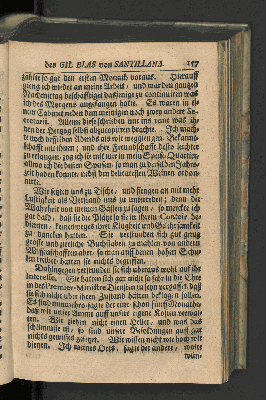 des GIL BLAS von SANTILLANA. 147
zahlte so gar den ersten Monath voraus. Hierauf
gieng ich wieder an meine Arbeit, und war den ganzen
Nachmittag beschäftiget dasjenige zu continuiren was
ich des Morgens angefangen hatte. Es waren in ei-
nem Cabinet neben dem meinigen noch zwey andere Se-
cretarii. Alleine diese schrieben nur ins reine was ih-
nen der Herzog selbst abzucopiren brachte. Ich mach-
te noch desselben Abends als wir weggiengen Bekannt-
schafft mit ihnen; und ihre Freundschafft desto leichter
zu erlangen, zog ich sie mit mir in mein Speise-Quartier,
allwo ich die besten Speisen, so man zu derselben Jahrs-
Zeit haben konnte, nebst den delicatesten Weinen ordo-
nirte.
Wir setzten uns zu Tische, und fiengen an mit mehr
Lustigkeit als Verstand uns zu unterreden; denn die
Wahrheit von meinen Gästen zu sagen, so merckte ich
gar bald, daß sie die Plätze so sie in ihrem Contoir be-
dienten, keineswegs ihrer Klugheit und Gelehrsamkeit
zu dancken hatten. Sie verstunden sich gut genug
grosse und zierliche Buchstaben zu mahlen, von andern
Wissenschafften aber, so man auf denen hohen Schu-
len treibet hatten sie nichts begriffen.
Dahingegen verstunden sie sich überaus wohl auf ihr
Interesse. Sie hatten sich gar nicht so sehr in die Ehre
in des Premier-Ministre Diensten zu seyn vergafft, daß
sie sich nicht über ihren Zustand hätten beklagen sollen.
Es sind nunmehro, sagte der eine schon fünf Monathe
daß wir unser Amme auf unsere eigene Kosten verwal-
ten. Wir ziehen nicht einen Heller, und was das
schlimmste ist, so sind unsere Besoldungen auf gar
nichts gewisses gesetzet. Wir wissen nicht wie hoch wir
dienen. Ich meines Orts, sagte der andere, wolte
wün-